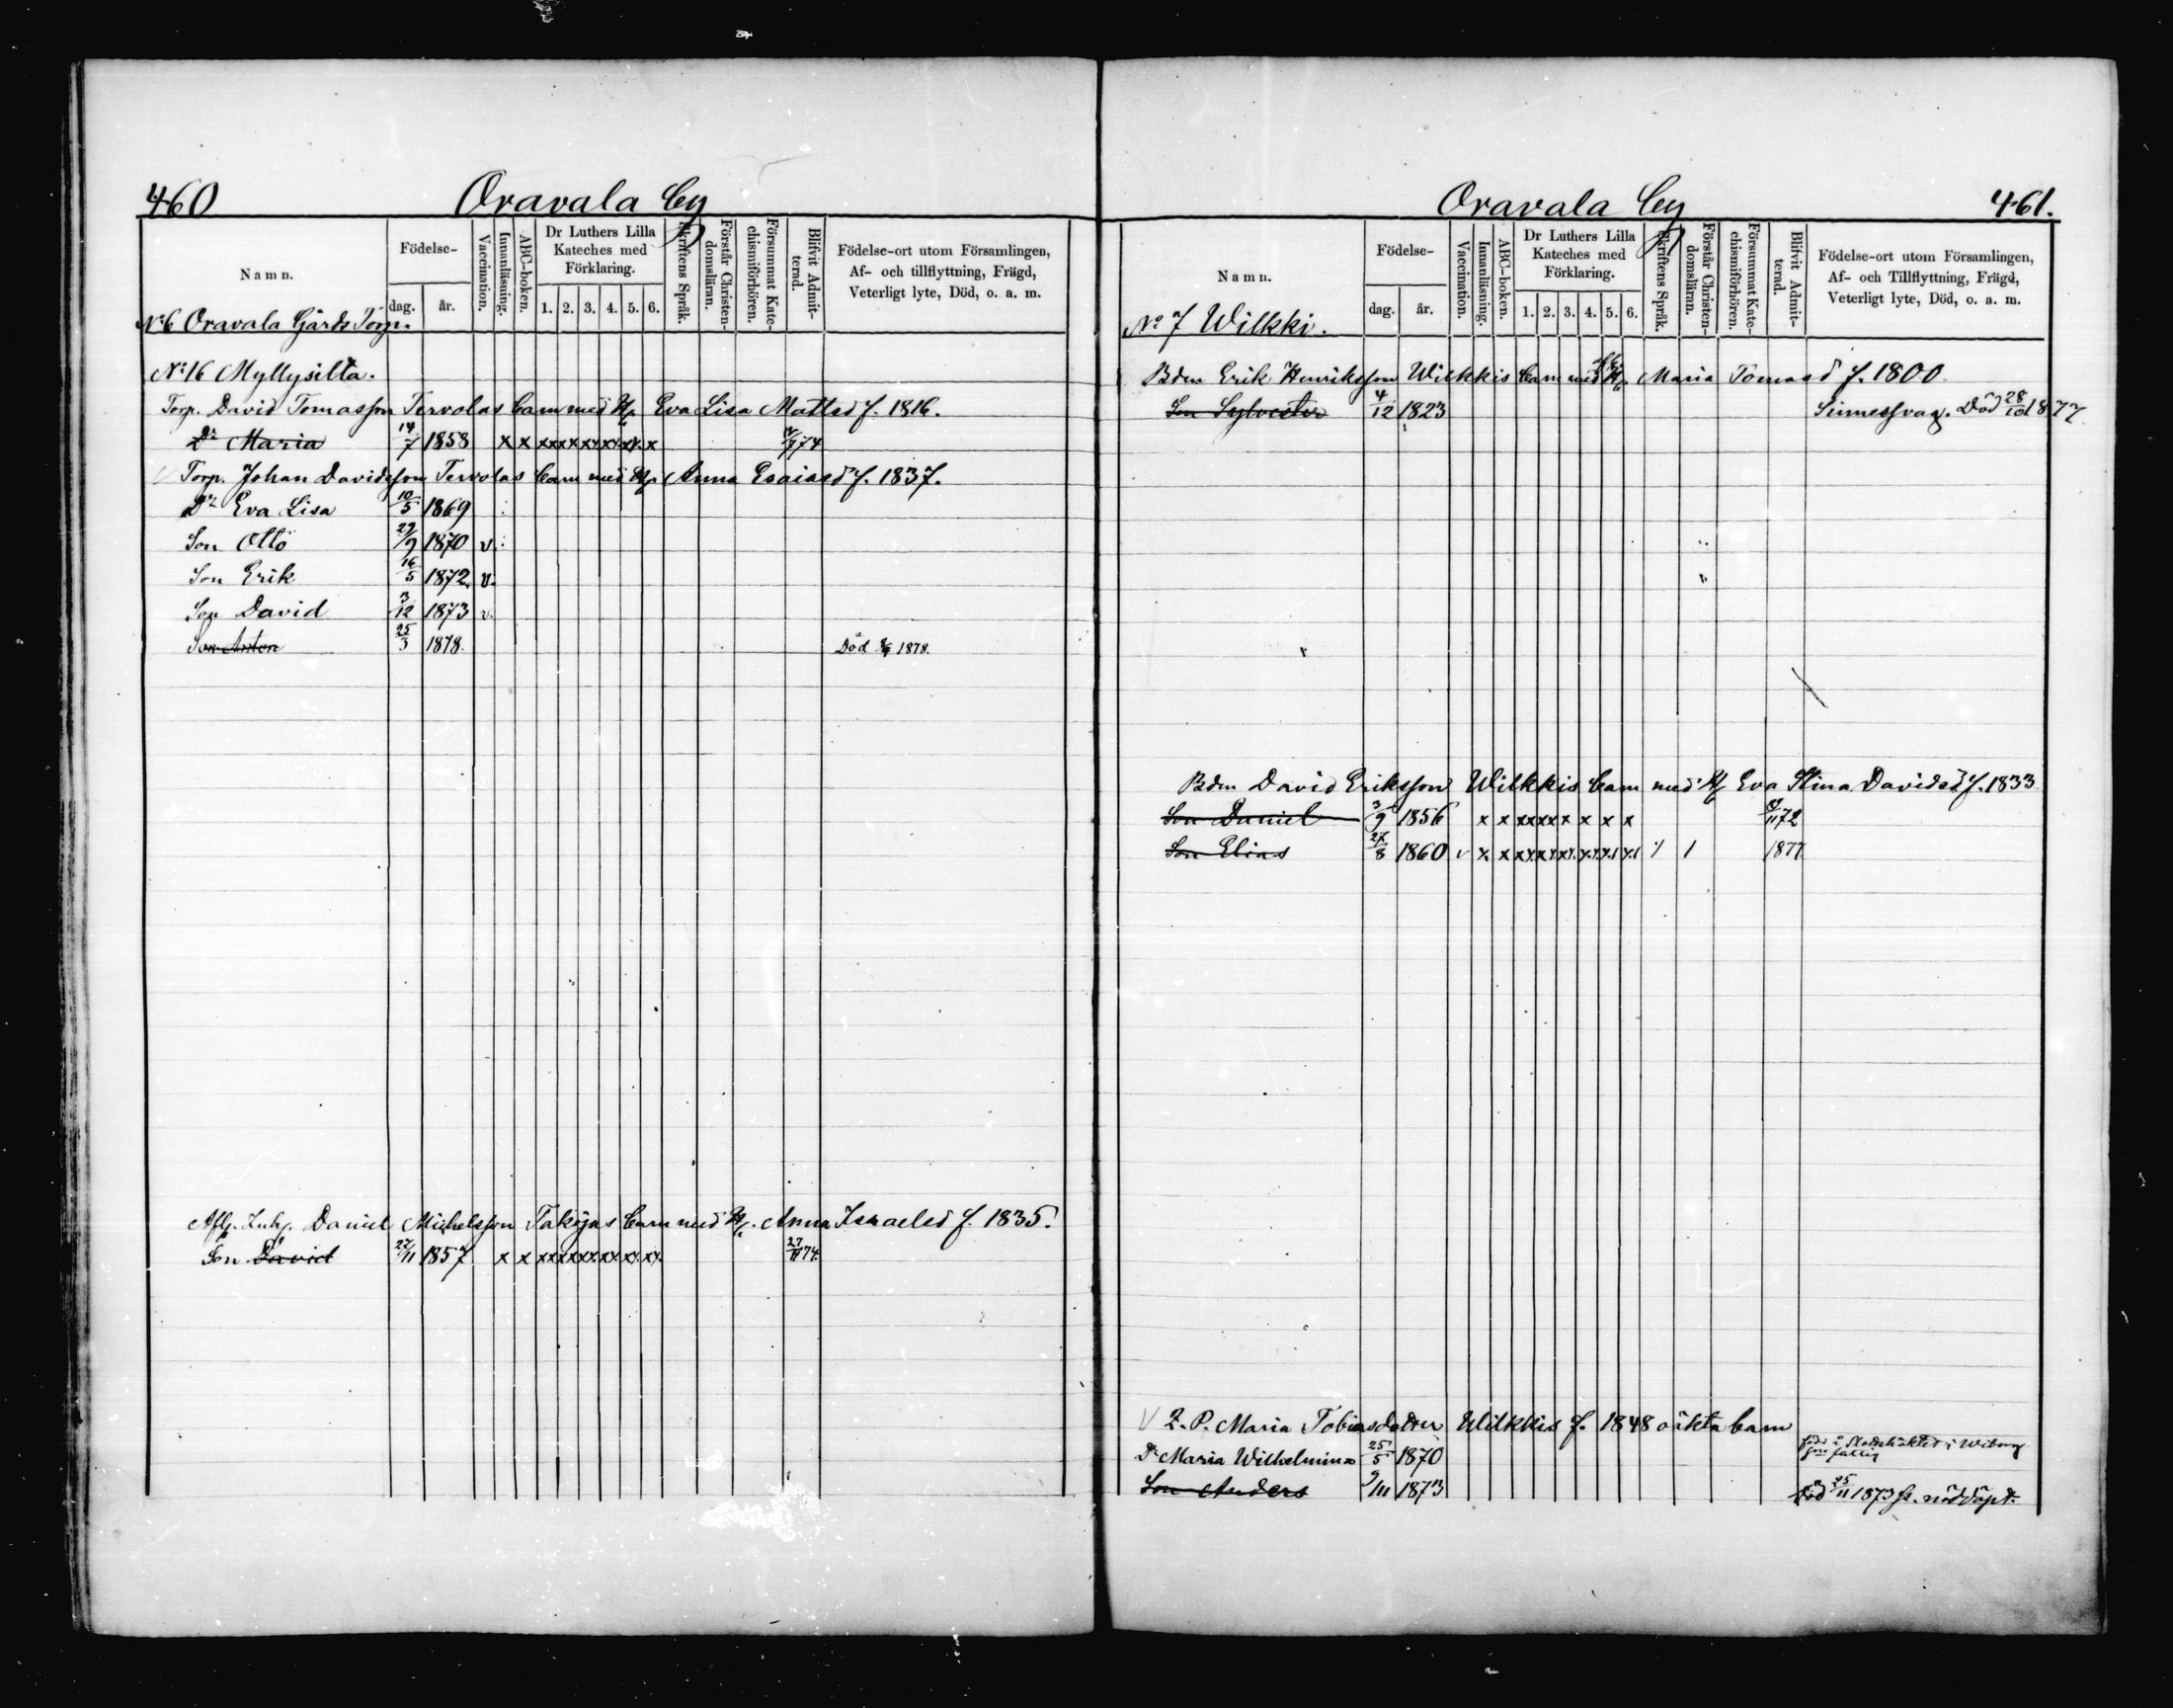 460 Oravala by
Namn. Födelse- dag. år. Vaccination. Innanläsning. ABC-boken. Dr Luthers Lilla Kateches med Förklaring. 1. 2. 3. 4. 5. 6. Skriftens Språk. Förstår Christendomsläran. Försummat Katechismiförhören. Blifvit Admitterad. Födelse-ort utom Församlingen, Af- och tillflyttning, Frägd, Veterligt lyte, Död, o. a. m.
No 6 Oravala Gårds Torp.
No 16 Myllysilta.
Torp. David Tomasson Tervolas barn med H. Eva Lisa Mattsd f. 1816.
Dr Maria 14/7 1858 x x xx xx xx xx xx x 74
Torp. Johan Davidsson Tervolas barn med H. Anna Esaiasd f. 1837.
Dr Eva Lisa 10/5 1869
Son Otto 29/9 1870 v.
Son Erik 16/5 1872 v.
Son David 3/12 1873 v.
Son Anton 25/3 1878. Död 1878.
Afsk. Inh. Daniel Michelsson Takojas barn med H. Anna Israelsd f. 1835.
Son David 27/11 1857 x x xx xx xx xx xx xx 27/11 74.
Oravala by 461.
Namn. Födelse- dag. år. Vaccination. Innanläsning. ABC-boken. Dr Luthers Lilla Kateches med Förklaring. 1. 2. 3. 4. 5. 6. Skriftens Språk. Förstår Christendomsläran. Försummat Katechismiförhören. Blifvit Admitterad. Födelse-ort utom Församlingen, Af- och Tillflyttning, Frägd, Veterligt lyte, Död, o. a. m.
No 7 Wilkki.
Bdn Erik Henriksson Wilkkis barn med H. Maria Tomasd f. 1800.
Son Sylvester 4/12 1823 Sinnessvag. Död 28/10 1877
Bdn David Eriksson Wilkkis barn med H Eva Stina Davidsd f. 1833
Son Daniel 3/9 1856 x x xx xx x x x x 72
Son Elias 27/8 1860 v x x xx xx xx xx xx x / / 1877
Q. P. Maria Tobiasdotter Wilkkis f. 1848 oäkta barn
Dr Maria Wilhelmina 25/5 1870 född å Slottshäktet i Wiborg
Son Anders 9/11 1873 Död 25/11 1873 nöddöpt.